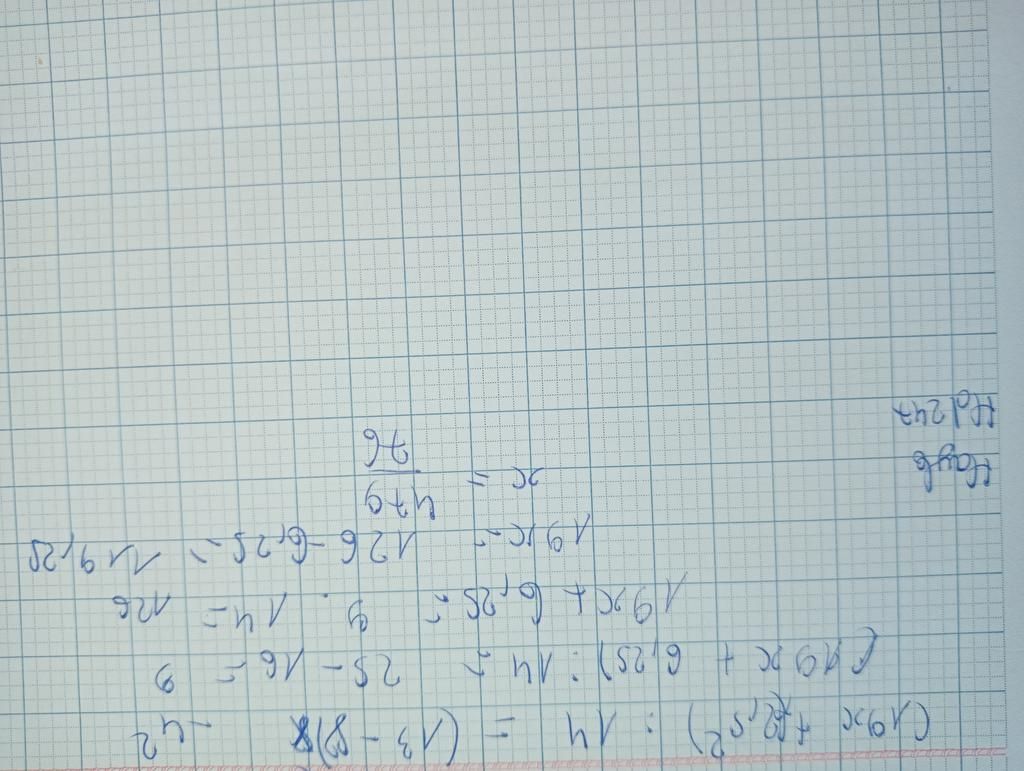 (19x + (2,5²) : 14 = (13 - 8)² - 4²
(19x + 6,25) : 14 = 25 - 16 = 9
19x + 6,25 = 9 · 14 = 126
19x = 126 - 6,25 = 119,25
x = 479/76